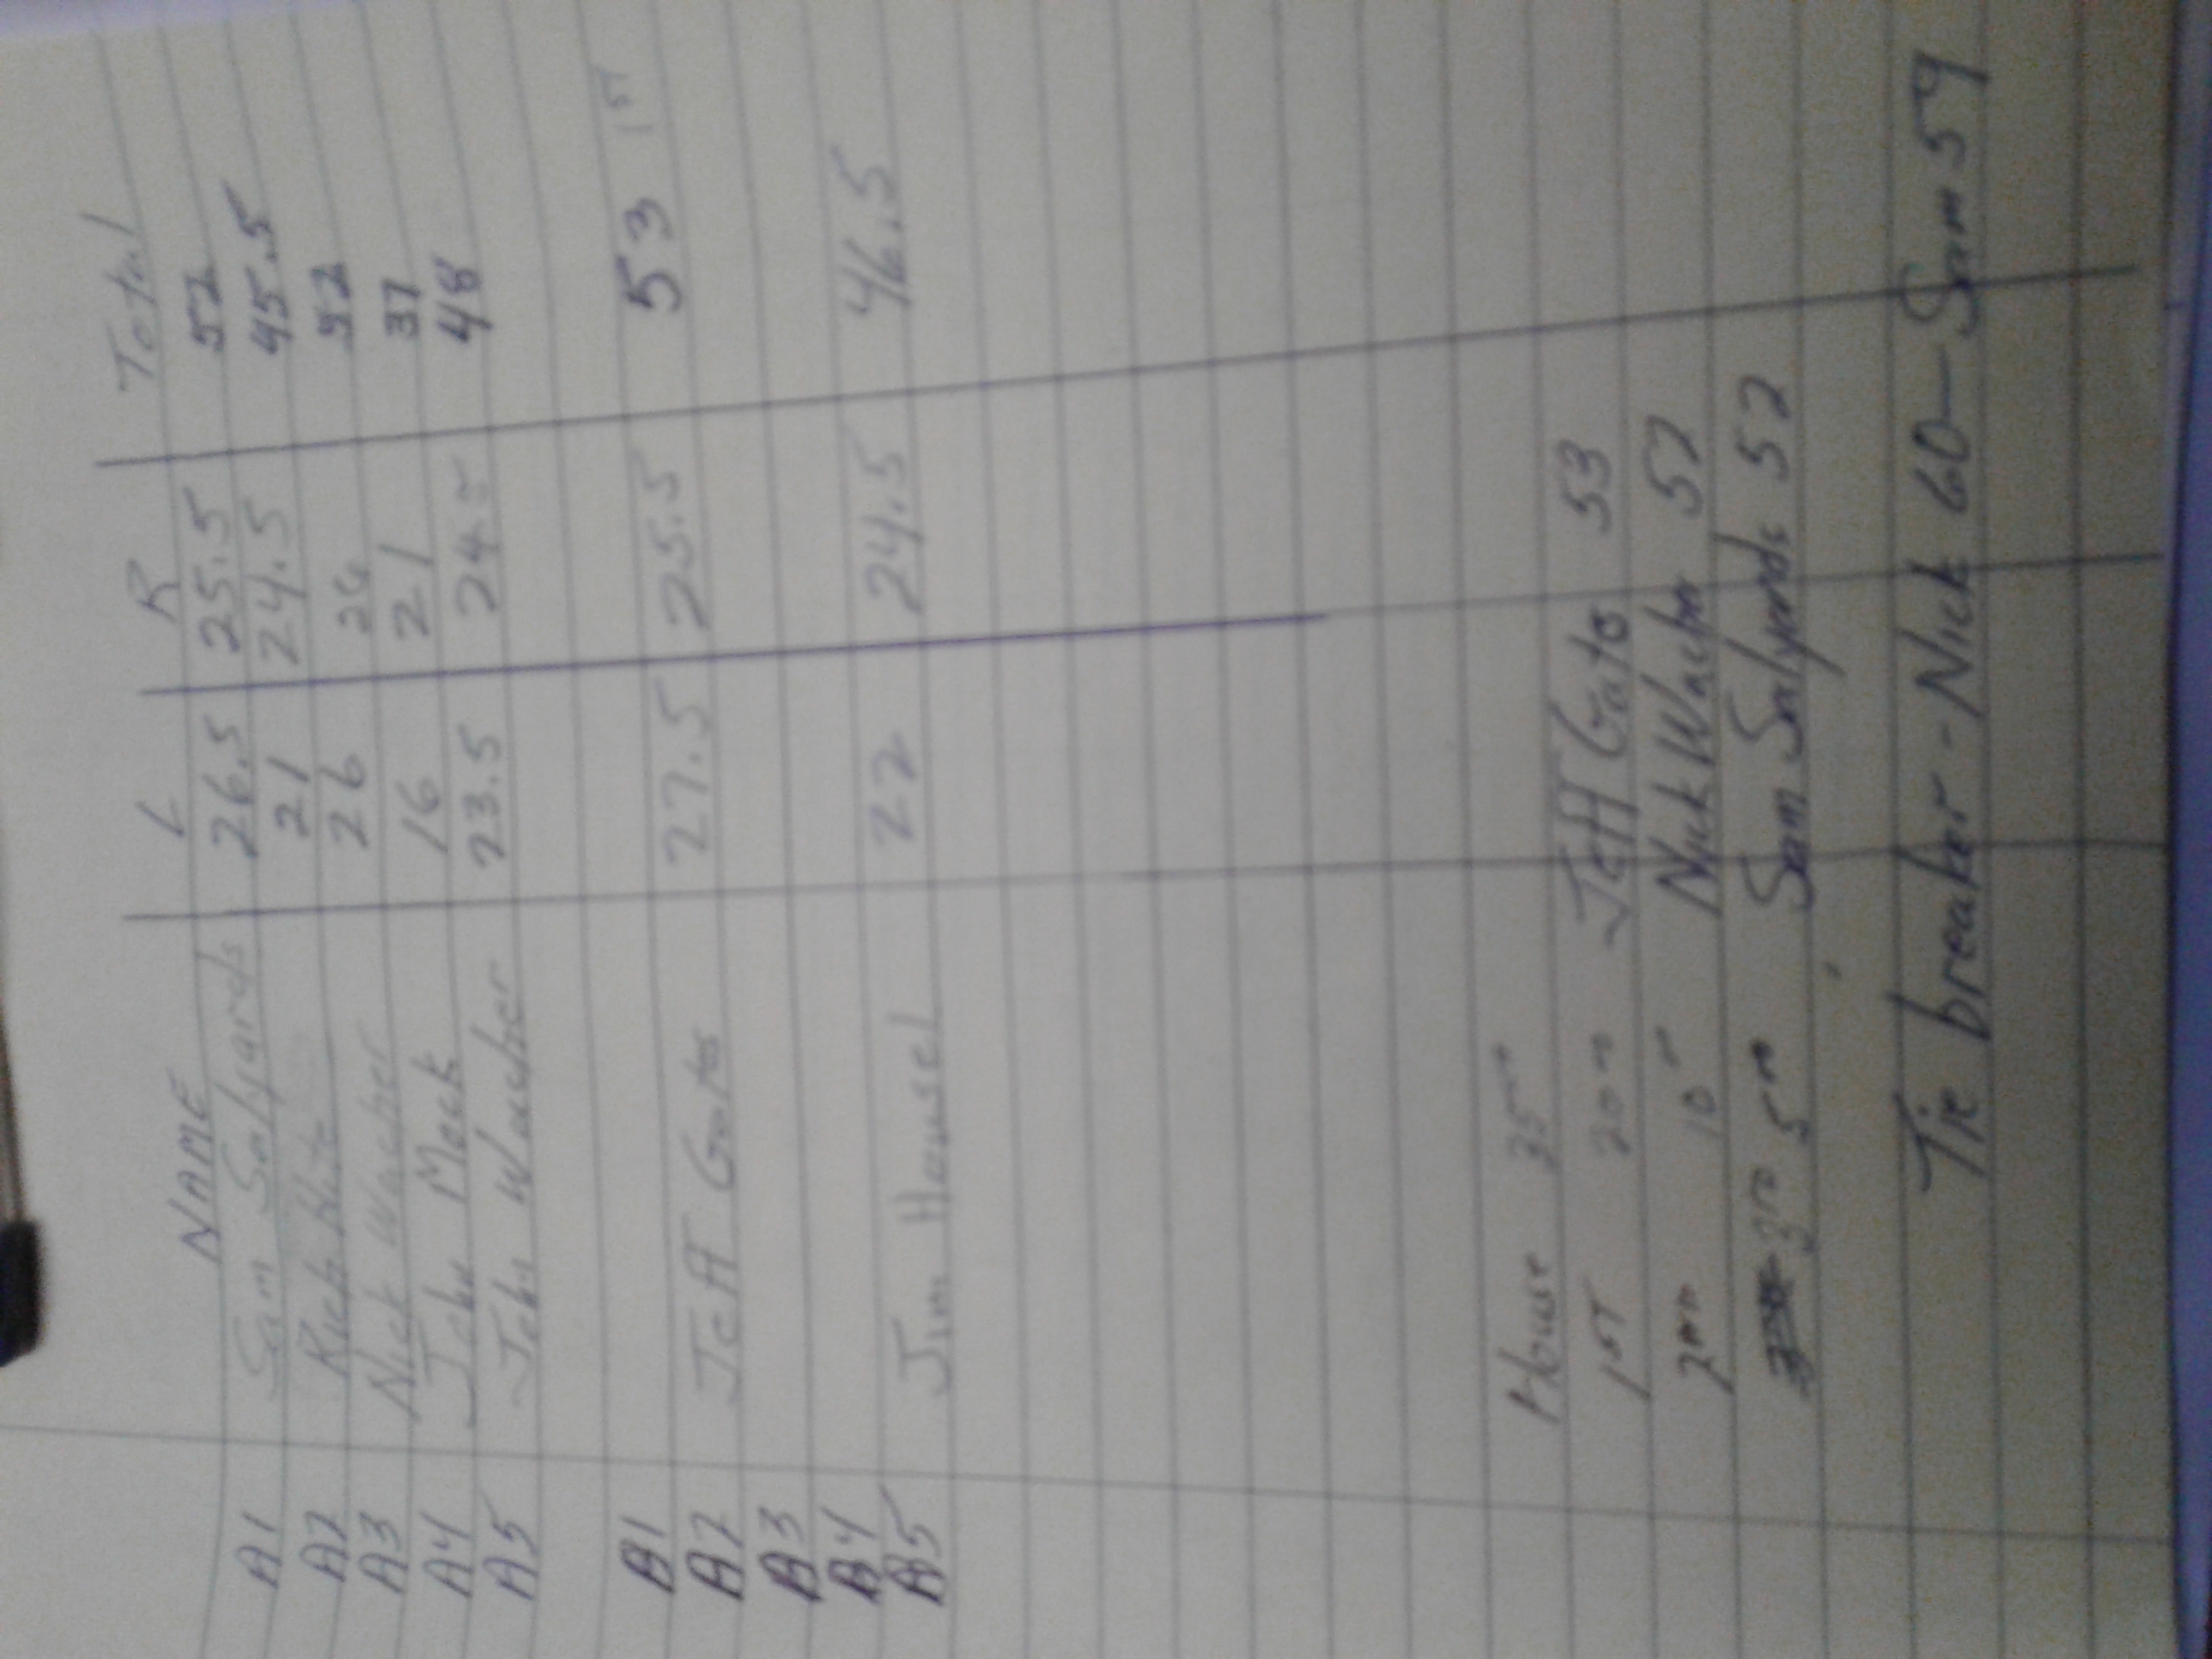 NAME L R Total
A1 Sam Salyards 26.5 25.5 52
A2 Rich 21 24.5 45.5
A3 Nick Wacher 26 26 52
A4 John Mack 16 21 37
A5 John Wacher 23.5 24.5 48
B1
B2 Jeff Gates 27.5 25.5 53 1ST
B3
B4
B5 Jim Housel 22 24.5 46.5
House 35
1ST 20 Jeff Gates 53
2ND 10 Nick Wacher 52
3RD 5 Sam Salyards 52
Tie breaker - Nick 60 - Sam 59